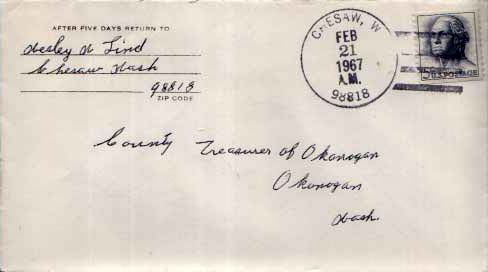 AFTER FIVE DAYS RETURN TO
Wesley W Lind
Chesaw Wash
98818
ZIP CODE
CHESAW, W
FEB
21
1967
A.M.
98818
5c U.S. POSTAGE
County Treasurer of Okanogan
Okanogan
Wash.